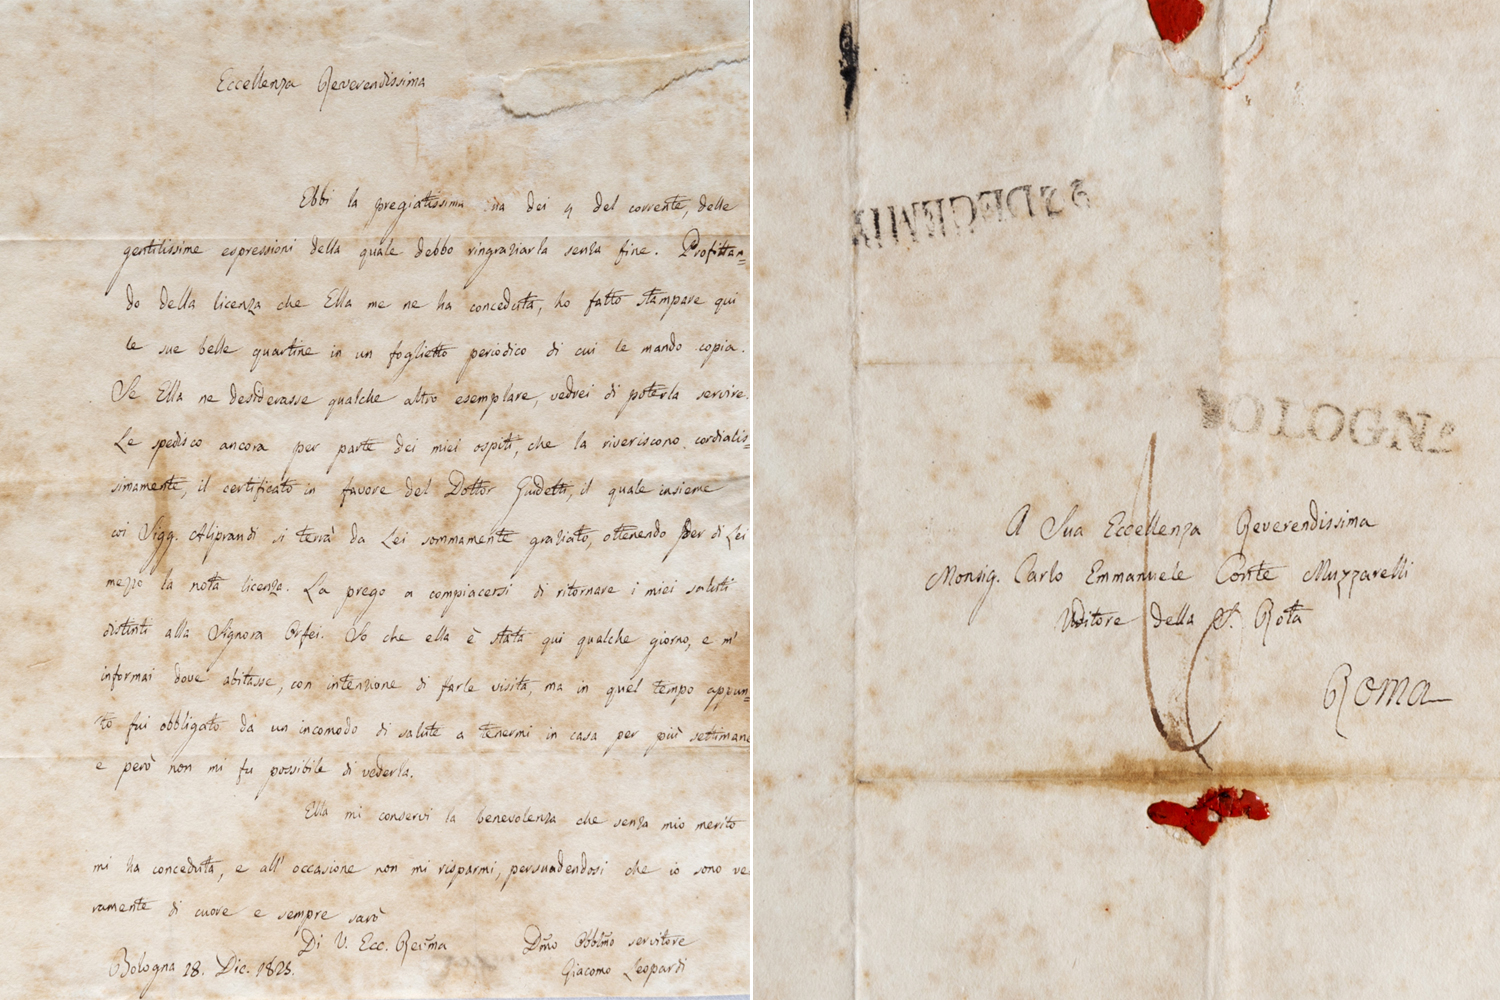 Eccellenza Reverendissima
Ebbi la pregiatissima sua dei 4 del corrente, delle
gentilissime espressioni della quale debbo ringraziarla senza fine. Profittan=
do della licenza che Ella me ne ha conceduta, ho fatto stampare qui
le sue belle quartine in un foglietto periodico di cui le mando copia.
Se Ella ne desiderasse qualche altro esemplare, vedrei di poterla servire.
Le spedisco ancora per parte dei miei ospiti, che la riveriscono cordialis=
simamente, il certificato in favore del Dottor Guidetti, il quale insieme
coi Sigg. Aliprandi si terrà da Lei sommamente graziato, ottenendo per di Lei
mezzo la nota licenza. La prego a compiacersi di ritornare i miei saluti
distinti alla Signora Orfei. So che ella è stata qui qualche giorno, e m'
informai dove abitasse, con intenzione di farle visita, ma in quel tempo appun=
to fui obbligato da un incomodo di salute a tenermi in casa per più settimane
e però non mi fu possibile di vederla.
Ella mi conservi la benevolenza che senza mio merito
mi ha conceduta, e all' occasione non mi risparmi, persuadendosi che io sono ve
ramente di cuore e sempre sarò
Di V. Ecc. Reṽma
Dṽmo Obblṽmo servitore
Bologna 28. Dic. 1825.
Giacomo Leopardi
BOLOGNA
A Sua Eccellenza Reverendissima
Monsig. Carlo Emmanuele Conte Muzzarelli
Uditore della S. Rota
Roma